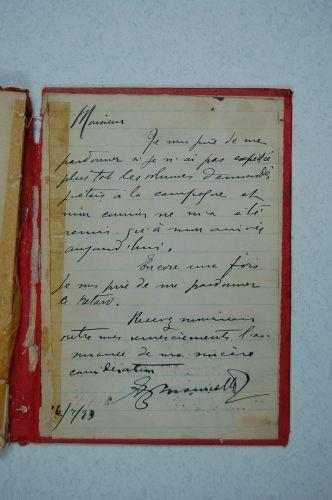 Monsieur
Je vous prie de me
pardonner si je n'ai pas expédié
plus tôt les volumes demandés
j'étais à la campagne et
mon courrier ne m'a été
remis qu'à mon arrivée
aujourd'hui.
Encore une fois
je vous prie de me pardonner
ce retard.
Recevez monsieur
outre mes remerciements l'as-
surance de ma sincère
considération
16/7/